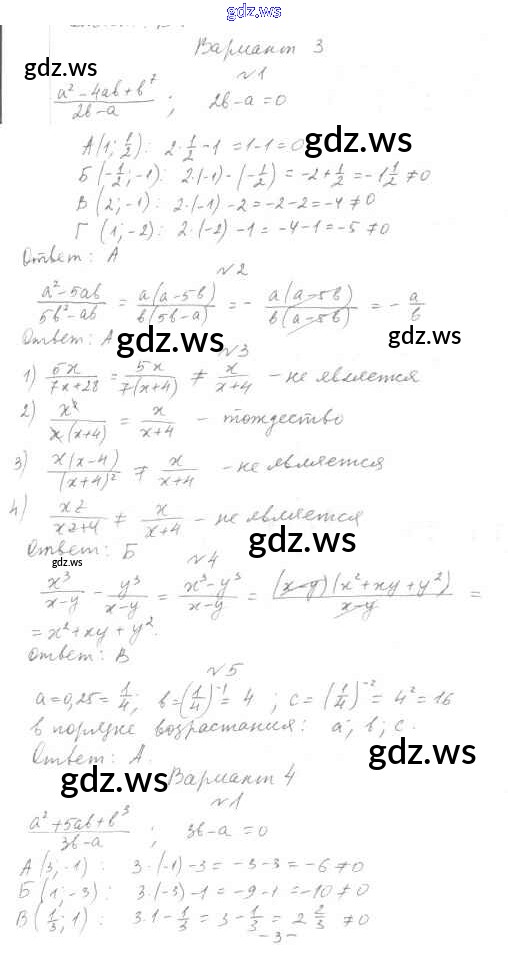 gdz.ws
Вариант 3
gdz.ws
№1
(a² - 4ab + b⁷)/(2b - a) ; 2b - a = 0
gdz.ws
А(1; 1/2): 2·1/2 - 1 = 1 - 1 = 0
Б(-1/2; -1): 2·(-1) - (-1/2) = -2 + 1/2 = -1 1/2 ≠ 0
В(2; -1): 2·(-1) - 2 = -2 - 2 = -4 ≠ 0
gdz.ws
gdz.ws
Г(1; -2): 2·(-2) - 1 = -4 - 1 = -5 ≠ 0
Ответ: А
№2
(a² - 5ab)/(5b² - ab) = a(a - 5b)/b(5b - a) = - a(a - 5b)/b(a - 5b) = - a/b
gdz.ws
gdz.ws
Ответ: А
№3
1) 5x/(7x + 28) = 5x/7(x + 4) ≠ x/(x + 4) - не является
2) x²/x(x + 4) = x/(x + 4) - тождество
3) x(x - 4)/(x + 4)² ≠ x/(x + 4) - не является
4) xz/(xz + 4) ≠ x/(x + 4) - не является
gdz.ws
gdz.ws
Ответ: Б
№4
gdz.ws
x³/(x - y) - y³/(x - y) = (x³ - y³)/(x - y) = (x - y)(x² + xy + y²)/(x - y) =
= x² + xy + y².
gdz.ws
Ответ: В
№5
a = 0,25 = 1/4; b = (1/4)⁻¹ = 4 ; c = (1/4)⁻² = 4² = 16
gdz.ws
в порядке возрастания: a; b; c.
gdz.ws
Ответ: А.
gdz.ws
Вариант 4
№1
(a² + 5ab + b³)/(3b - a) ; 3b - a = 0
gdz.ws
А(3; -1): 3·(-1) - 3 = -3 - 3 = -6 ≠ 0
Б(1; -3): 3·(-3) - 1 = -9 - 1 = -10 ≠ 0
gdz.ws
В(1/3; 1): 3·1 - 1/3 = 3 - 1/3 = 2 2/3 ≠ 0
-3-